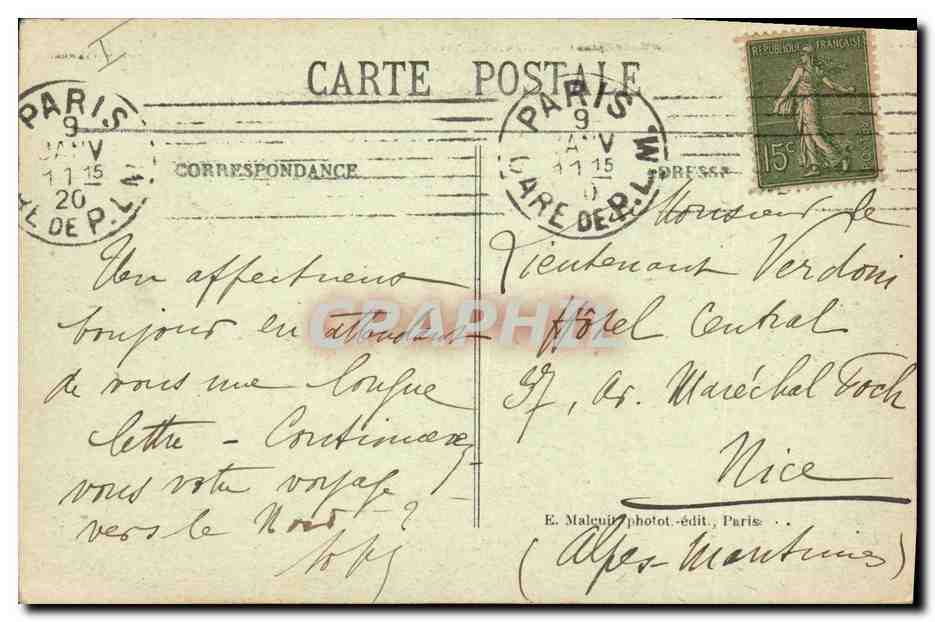 CARTE POSTALE
REPUBLIQUE FRANÇAISE
15c
PARIS
9
JANV
11 15
20
GARE DE P.L.M.
PARIS
9
JANV
11 15
GARE DE P.L.M.
CORRESPONDANCE
Un affectueux
bonjour en attendant
de vous une longue
lettre - Continuerez
vous votre voyage
vers le Nord - ?
Monsieur le
Lieutenant Verdoni
Hôtel Central
37, Av. Maréchal Foch
Nice
(Alpes-Maritimes)
E. Malcuit, photot.-édit., Paris
GRAPHIL